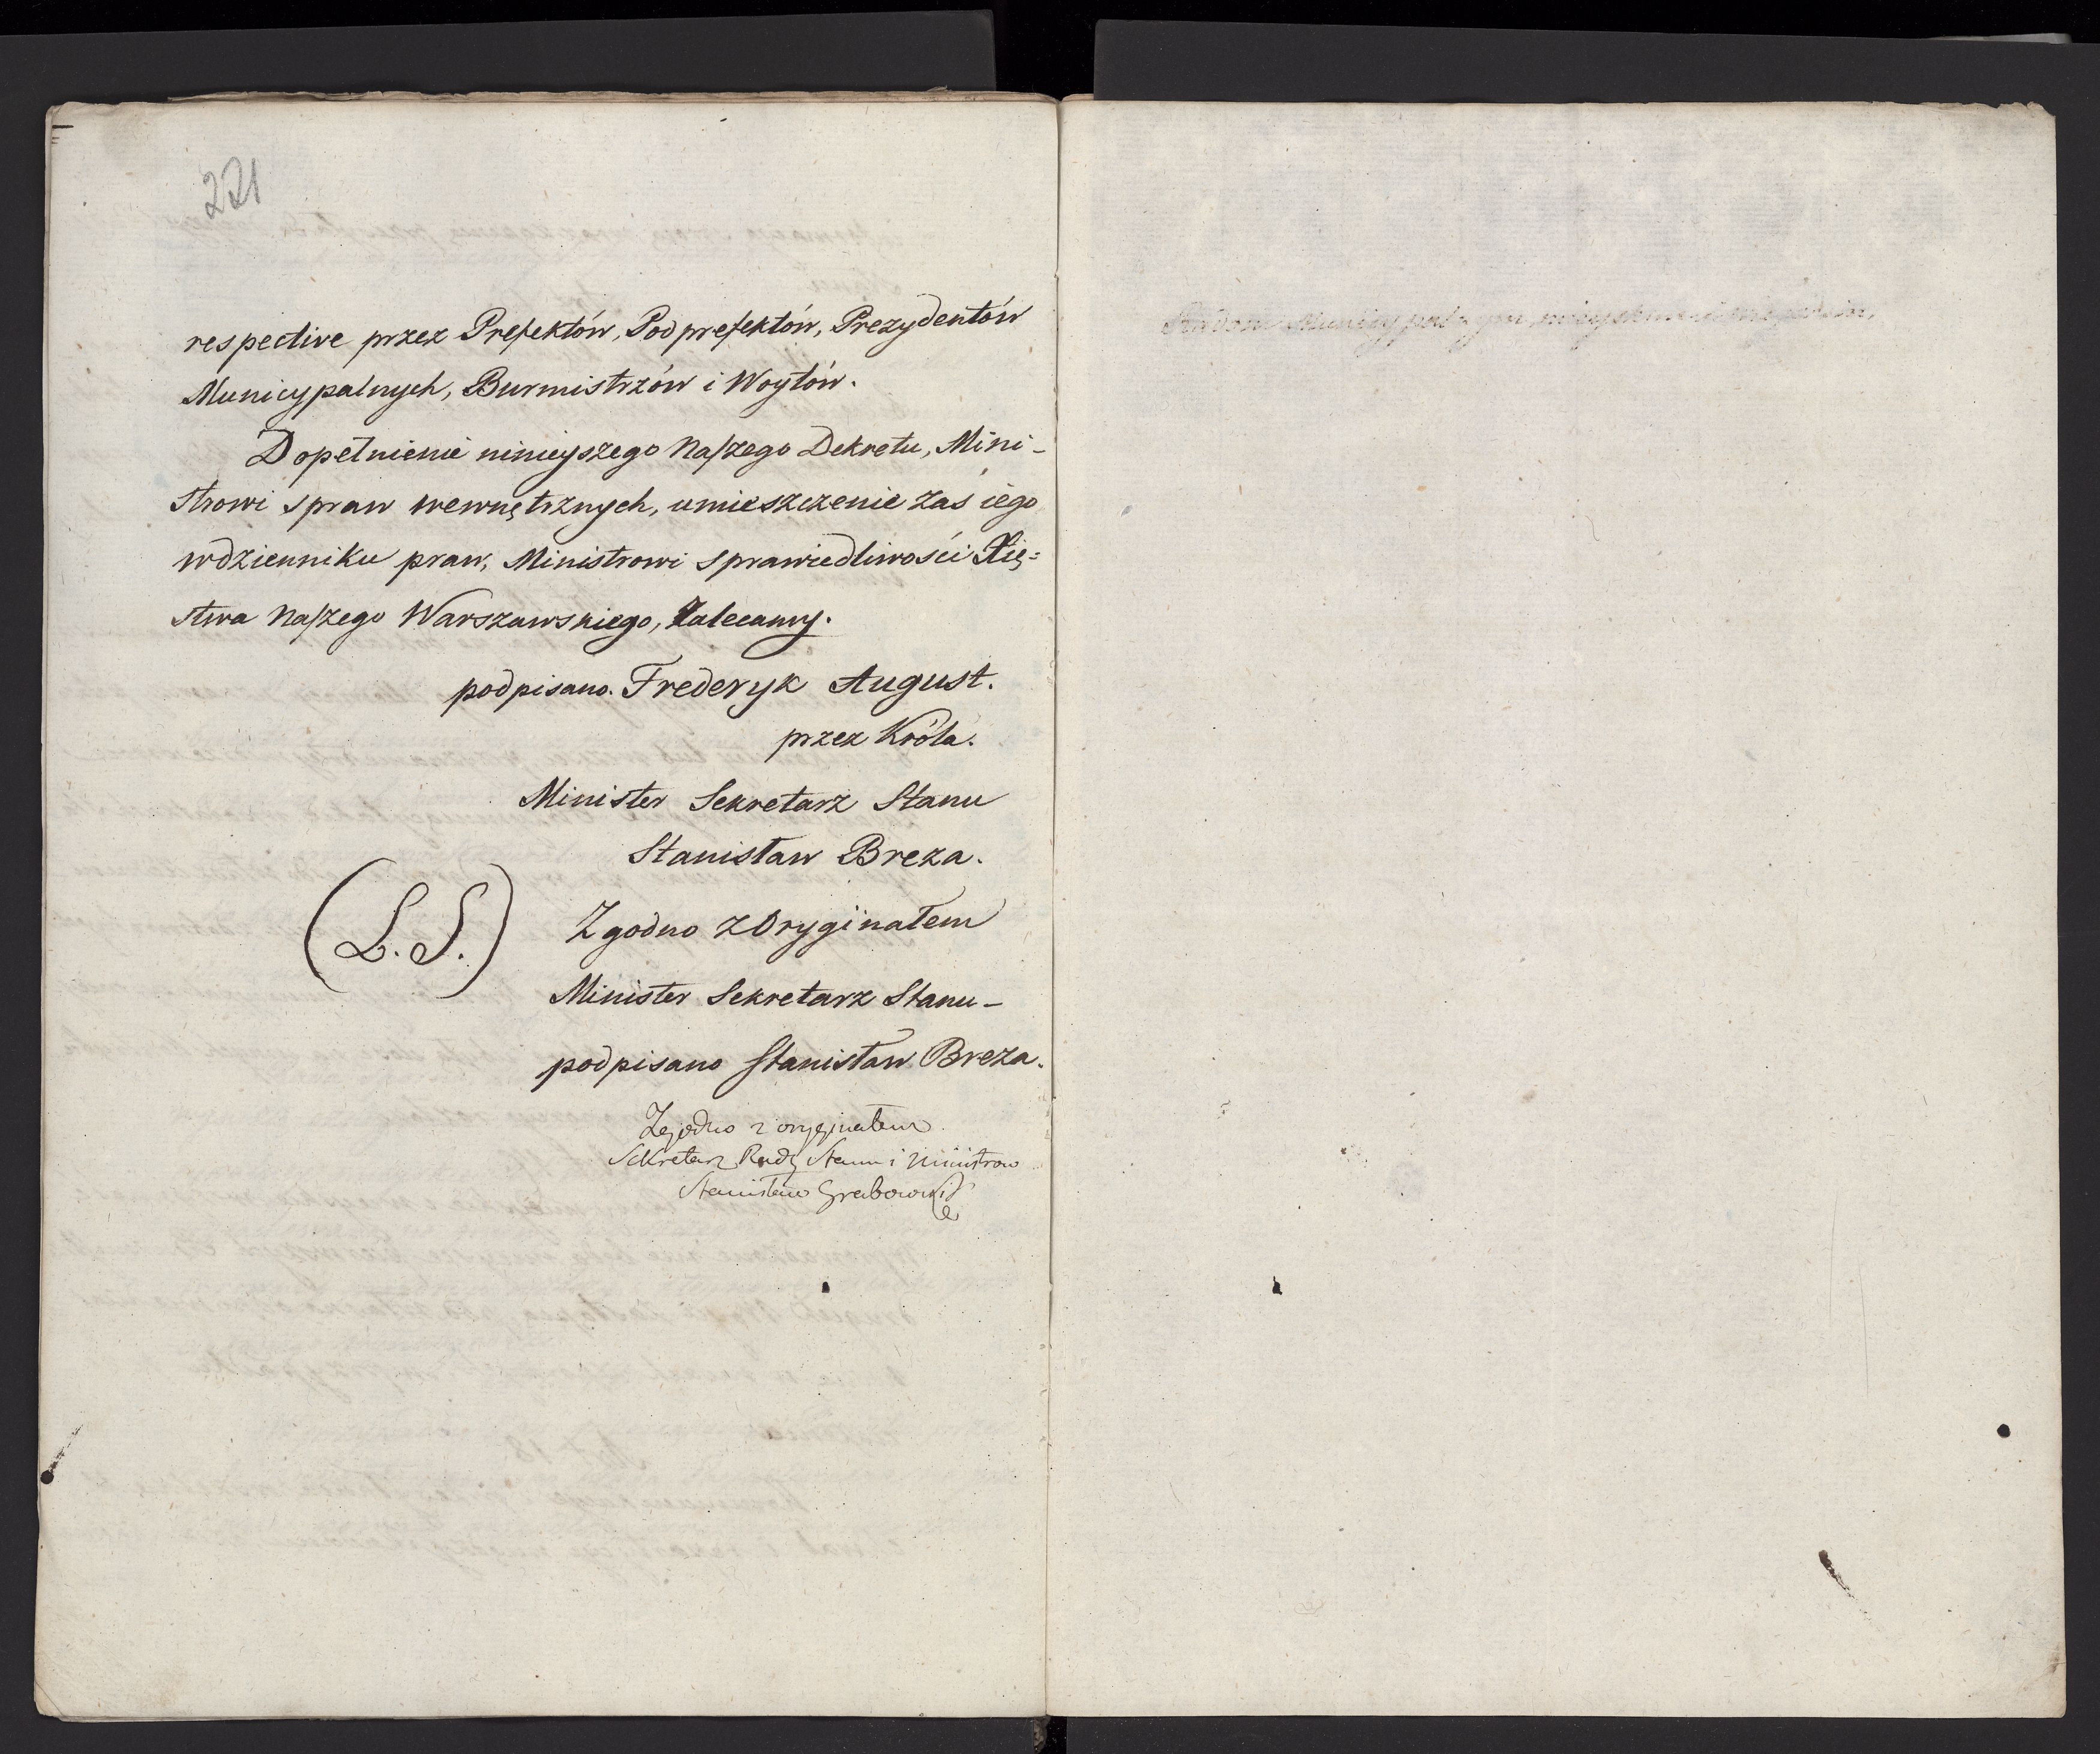 221
respective przez Prefektów, Podprefektów, Prezydentów
Municypalnych, Burmistrzów i Woytów.
Dopełnienie ninieyszego Naszego Dekretu, Mini-
strowi spraw wewnętrznych, umieszczenie zaś iego
wdzienniku praw, Ministrowi sprawiedliwości Xię=
stwa Naszego Warszawskiego, Zalecamy.
podpisano. Frederyk August.
przez Króla.
Minister Sekretarz Stanu
Stanisław Breza.
(L.S.) Zgodno z Oryginałem
Minister Sekretarz Stanu-
podpisano Stanisław Breza.
Zgodno z oryginałem
Sekretarz Rady Stanu i Ministrow
Stanisław Grabowski